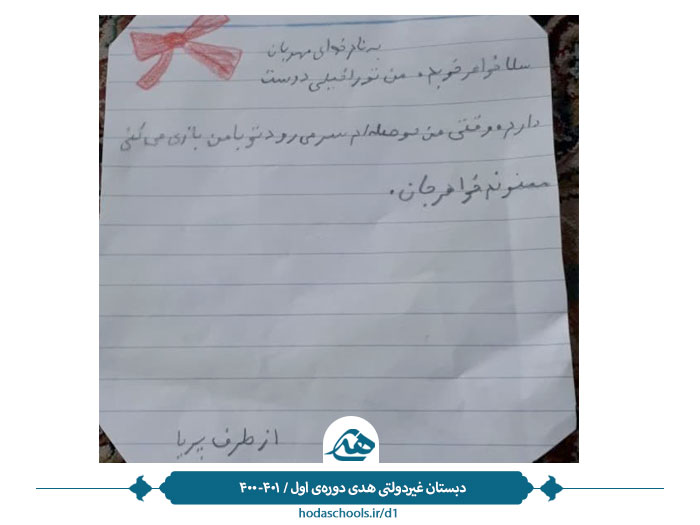 به نام خدای مهربان
سلام خواهر خوبم. من تو را خیلی دوست
دارم وقتی من حوصله‌ام سر می رود تو با من بازی می کنی
ممنونم خواهر جان.
از طرف پریا
هدی
دبستان غیردولتی هدی دوره‌ی اول / ۴۰۱-۴۰۰
hodaschools.ir/d1